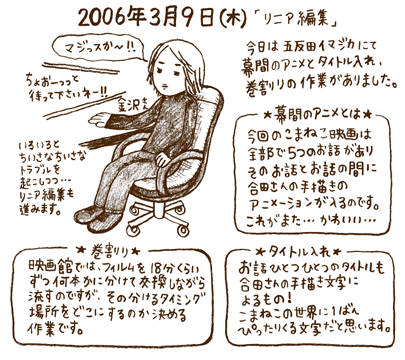 2006年3月9日(木)「リニア編集」
マジっスか〜!!
ちょおーっっと
待って下さいネー!!
金沢さん
いろいろと
ちいさなちいさな
トラブルを
起こしつつ…
リニア編集も
進みます。
今日は五反田イマジカにて
幕間のアニメとタイトル入れ、
巻割りの作業がありました。
★幕間のアニメとは★
今回のこまねこ映画は
全部で5つのお話があり
そのお話とお話の間に
合田さんの手描きの
アニメーションが入るのです。
これがまた…かわいい…
★巻割り★
映画館では、フィルムを18分くらい
ずつ何本かに分けて交換しながら
流すのですが、その分けるタイミング
場所をどこにするのか決める
作業です。
★タイトル入れ★
お話ひとつひとつのタイトルも
合田さんの手描き文字に
よるもの!
こまねこの世界に1ばん
ぴったりくる文字だと思います。